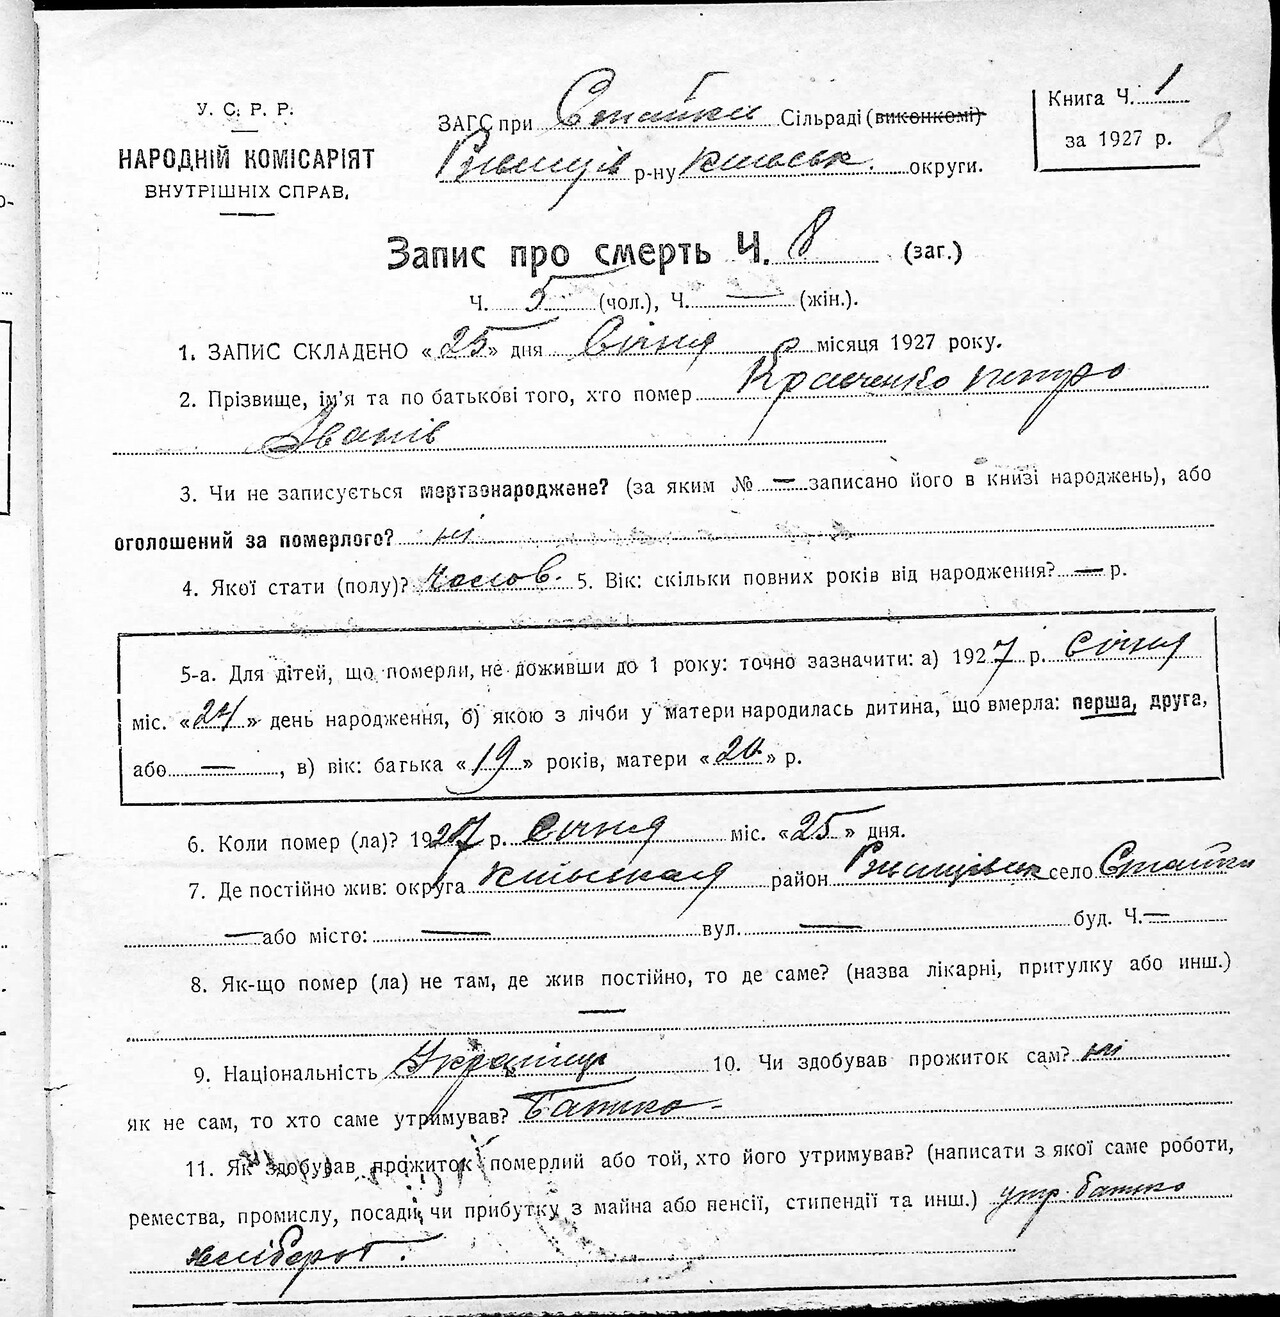 У. С. Р. Р.
НАРОДНІЙ КОМІСАРІЯТ
ВНУТРІШНІХ СПРАВ.
ЗАГС при Стайки Сільраді (виконкомі)
Ржищів р-ну Київськ. округи.
Книга Ч. 1
за 1927 р.
8
Запис про смерть Ч. 8 (заг.)
Ч. 5 (чол.), Ч. — (жін.).
1. ЗАПИС СКЛАДЕНО «25» дня Січня місяця 1927 року.
2. Прізвище, ім'я та по батькові того, хто помер Кравченко Петро
Іванів
3. Чи не записується мертвонароджене? (за яким № — записано його в книзі народжень), або
оголошений за померлого? ні
4. Якої стати (полу)? чолов. 5. Вік: скільки повних років від народження? — р.
5-а. Для дітей, що померли, не доживши до 1 року: точно зазначити: а) 1927 р. Січня
міс. «24» день народження, б) якою з лічби у матери народилась дитина, що вмерла: перша, друга,
або —, в) вік: батька «19» років, матери «20» р.
6. Коли помер (ла)? 1927 р. Січня міс. «25» дня.
7. Де постійно жив: округа Київская район Ржищівськ село Стайки
— або місто: — вул. — буд. Ч. —
8. Як-що помер (ла) не там, де жив постійно, то де саме? (назва лікарні, притулку або инш.)
—
9. Національність Українець 10. Чи здобував прожиток сам? ні
як не сам, то хто саме утримував? Батько -
11. Як здобував прожиток померлий або той, хто його утримував? (написати з якої саме роботи,
ремества, промислу, посади, чи прибутку з майна або пенсії, стипендії та инш.) утр. батько
хлібороб.